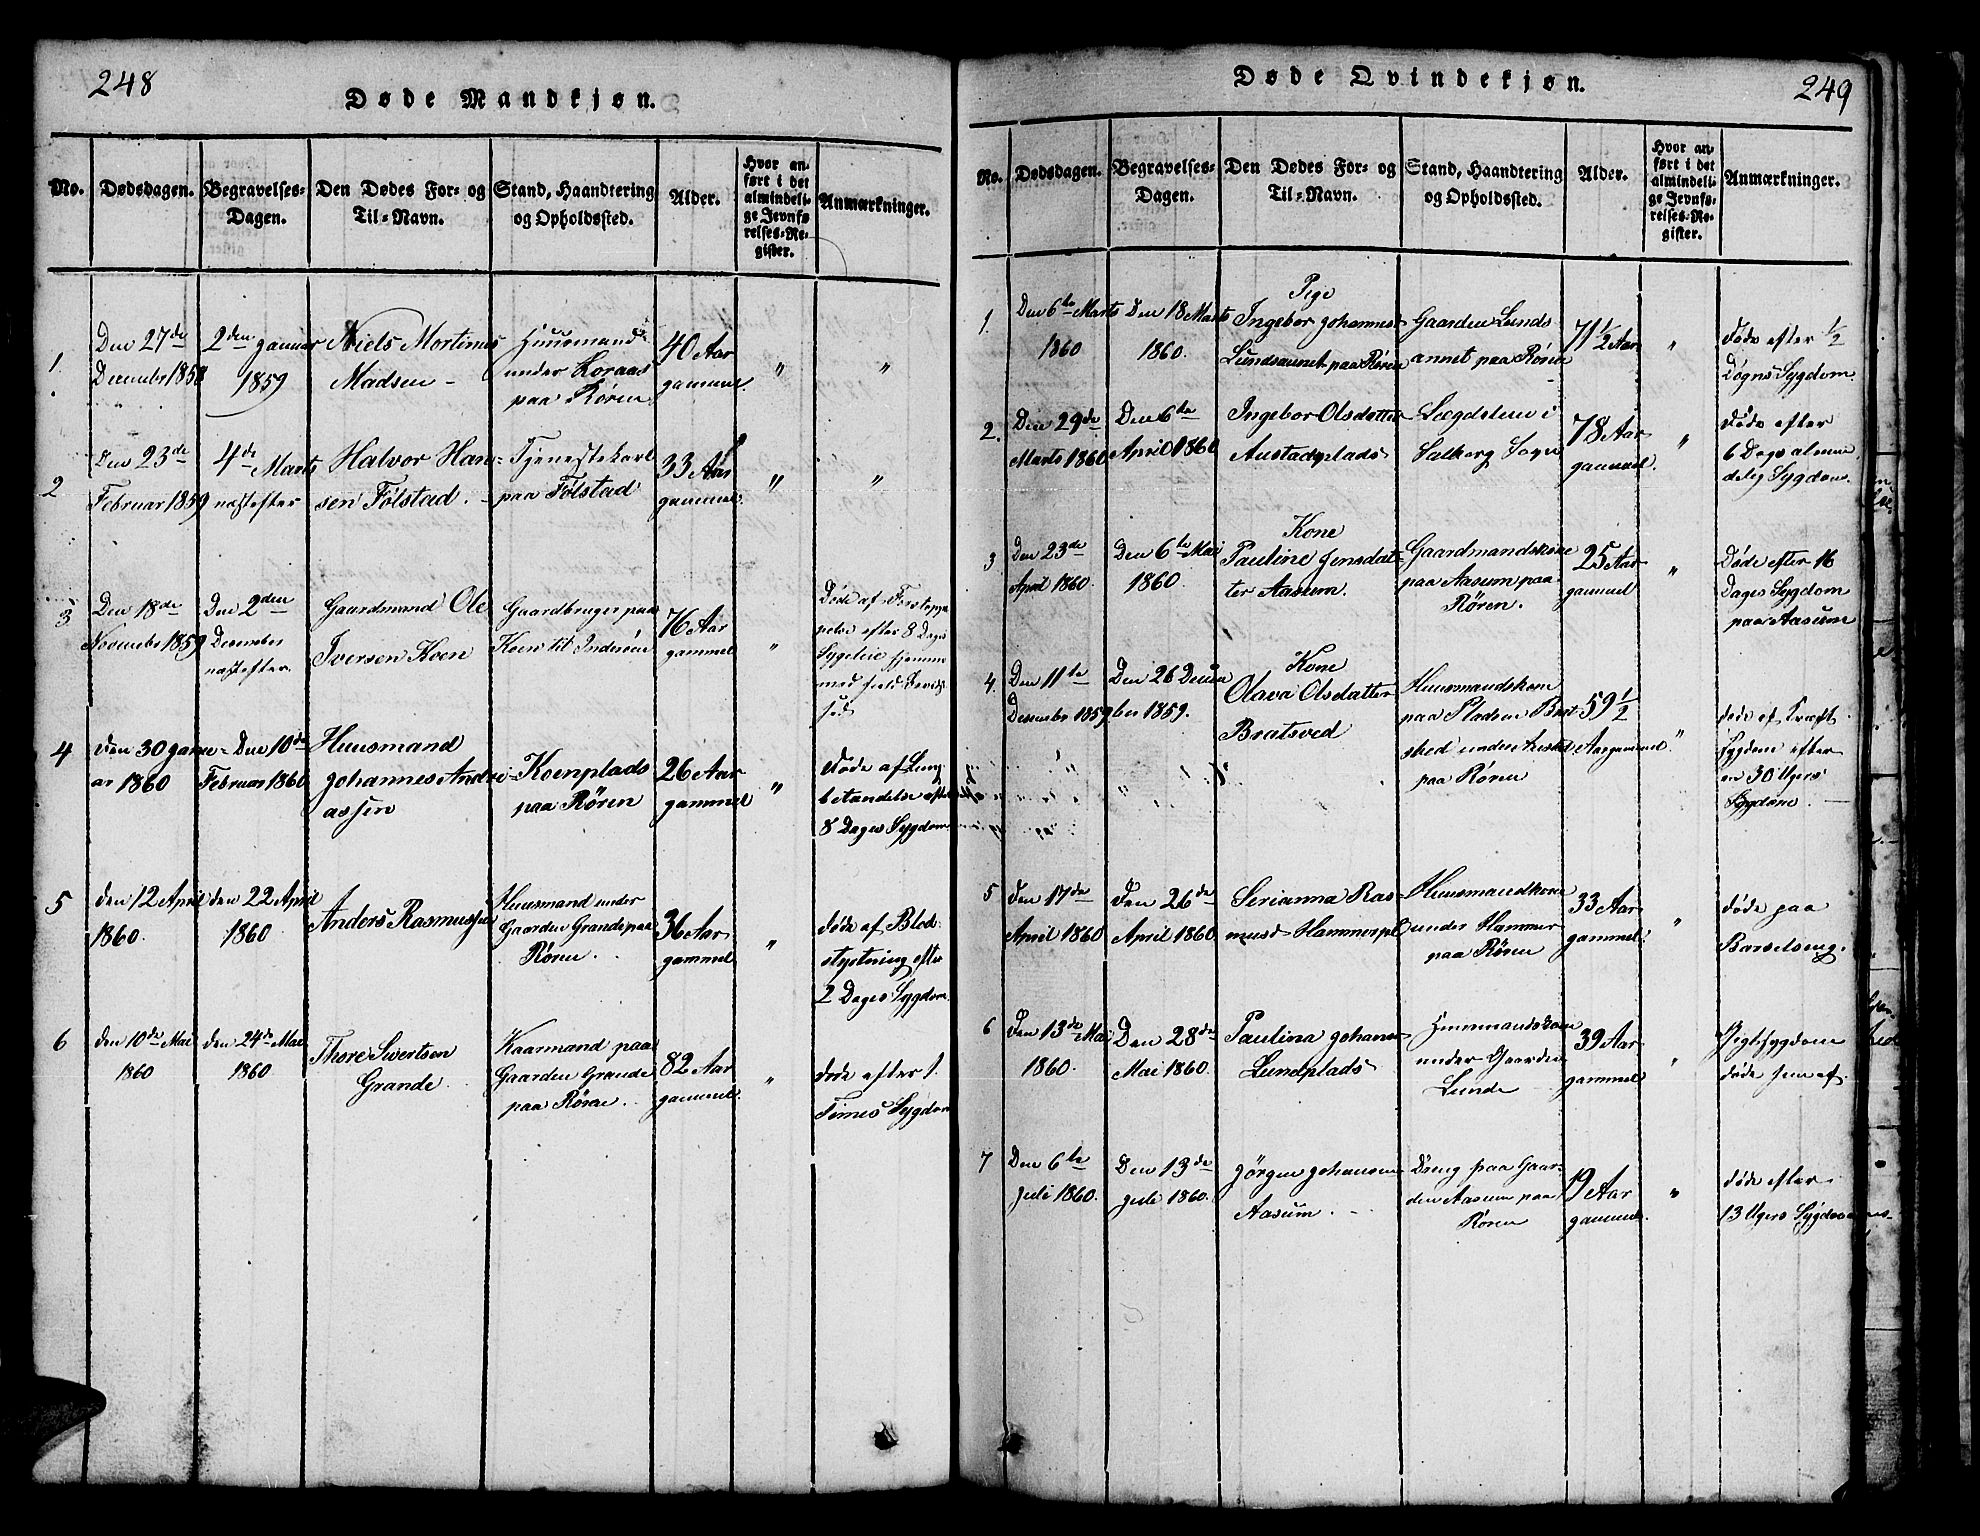 248
Døde Mandkjøn.
No.
Dødsdagen.
Begravelses-
Dagen.
Den Dødes For- og
Til-Navn.
Stand, Haandtering
og Opholdssted.
Alder.
Hvor an-
ført i det
almindeli-
ge Jevnfø-
relses-Re-
gister.
Anmærkninger.
1.
Den 27de
December 1858
2den Januar
1859
Niels Mortinus
Madsen -
Huusmand
under Koraas
paa Røren
40 Aar
gammel
"
"
2
Den 23de
Februar 1859
4de Marts
næstefter
Halvor Han-
sen Følstad.
Tjenestekarl
paa Følstad
33 Aar
gammel.
"
"
3
Den 18de
November 1859
Den 2den
December
næstefter.
Gaardmand Ole
Iversen Koen
Gaardbruger paa
Koen til Inderøen
76 Aar
gammel
"
Døde af Forstop-
pelse efter 8 Dages
Sygeleie
4
Den 30 Janu-
ar 1860
Den 10de
Februar 1860
Huusmand
Johannes Andre-
assen
Koenplads
paa Røren
26 Aar
gammel
"
Døde af Lung
betændelse efter
8 Dages Sygdom
5
den 12 April
1860.
den 22 April
1860
Anders Rasmussen
Huusmand under
Gaarden Grande paa
Røren.
36 Aar
gammel
"
døde af Blod-
styrtning efter
2 Dages Sygdom.
6
den 10de Mai
1860
den 24de Mai
1860
Thore Swertsen
Grande
Kaarmand paa
Gaarden Grande
paa Røren.
82 Aar
gammel.
"
døde efter 1.
Times Sygdom
249
Døde Qvindekjøn.
No.
Dødsdagen.
Begravelses-
Dagen.
Den Dødes For- og
Til-Navn.
Stand, Haandtering
og Opholdssted.
Alder.
Hvor an-
ført i det
almindeli-
ge Jevnfø-
relses-Re-
gister.
Anmærkninger.
1.
Den 6te Marts
1860
Den 18 Marts
1860.
Pige
Ingebor Johannes-
Lundsaunet paa Røren
Gaarden Lunds
aunet paa Røren
71 1/2 Aar
"
døde efter 1/2
Døgns Sygdom.
2.
Den 29de
Marts 1860
Den 6te
April 1860
Ingebor Olsdatter
Austadplads
Lægdslem i
Salberg Sogn
78 Aar
gammel.
"
døde efter
6 Dags almin
delig Sygdom.
3
Den 23de
April 1860.
Den 6te Mai
1860
Kone
Pauline Jensdat-
ter Aasum.
Gaardmandskone
paa Aasum paa
Røren.
25 Aar
gammel
"
Døde efter 16
Dages Sygdom
paa Aasum
4.
Den 11te
December 1859
Den 26 Decem
ber 1859.
Kone
Olava Olsdatter
Bratsved
Huusmandskone
paa Pladsen Brat-
sved under
paa Røren
59 1/2
Aar gammel.
"
døde af Kræft-
Sygdom efter
en 30 Ugers
Sygdom.
5
Den 17de
April 1860
Den 26de
April 1860
Serianna Ras-
musd. Hammerpl.
Huusmandskone
under Hammer
paa Røren
33 Aar
gammel.
"
døde paa
Barselseng.
6
Den 13de Mai
1860.
Den 28de
Mai 1860.
Paulina Johans-
Lundplads
Huusmandskone
under Gaarden
Lunde
39 Aar
gammel
"
Gigtsygdom
døde hun af.
7
Den 6te
Juli 1860.
Den 13de
Juli 1860.
Jørgen Johansen
Aasum.
Dreng paa Gaar-
den Aasum paa
Røren
19 Aar
gammel.
"
døde efter
13 Ugers Sygdom